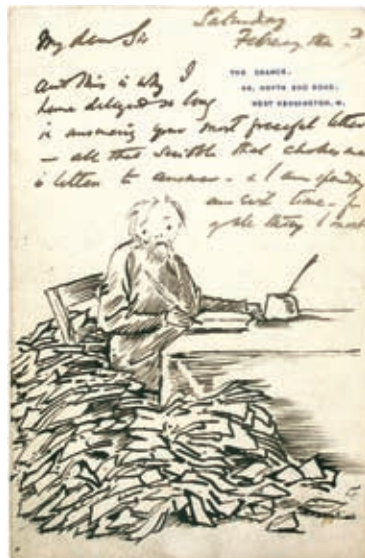 Saturday
February the
My dear Sir
And this is why I
THE GRANGE,
49, NORTH END ROAD,
WEST KENSINGTON, W.
have delayed so long
in answering your most graceful letter
— all that scribble that chokes me
is letters to answer - & I am spending
an evil time - for
of all things I most